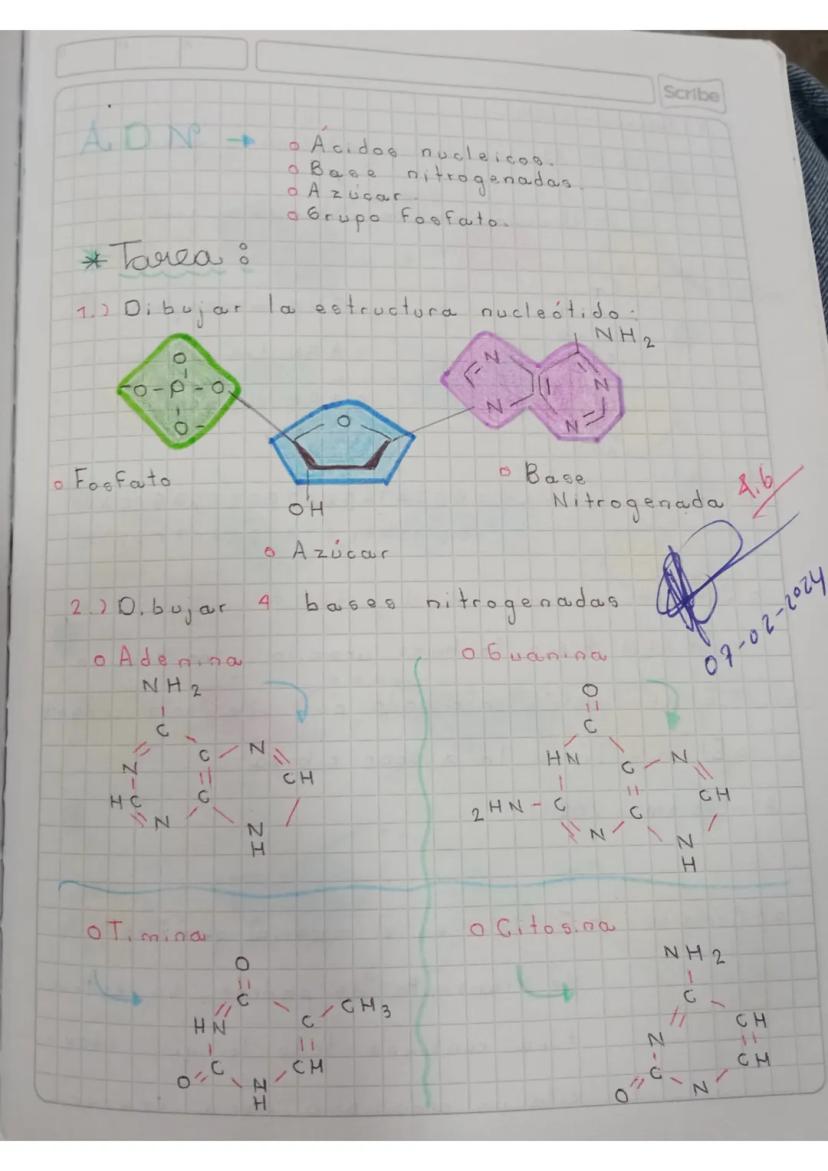 Scribe
ADN →
o Ácidos nucleicos.
o Base nitrogenadas.
o Azúcar.
o Grupo fosfato.
* Tarea:
1.) Dibujar la estructura nucleótido:
NH2
O
-O-P-O
O-
N
N
N
N
O
OH
o Fosfato
o Base
Nitrogenada
4.6
o Azúcar
07-02-2024
2.) Dibujar 4 bases nitrogenadas
o Adenina
NH2
C
N C N
HC C CH
N N
H
o Guanina
O
C
HN C N
2HN-C C CH
N N
H
o Timina
O
C C CH3
HN
O C CH
N
H
o Citosina
NH2
C
N CH
C CH
O N